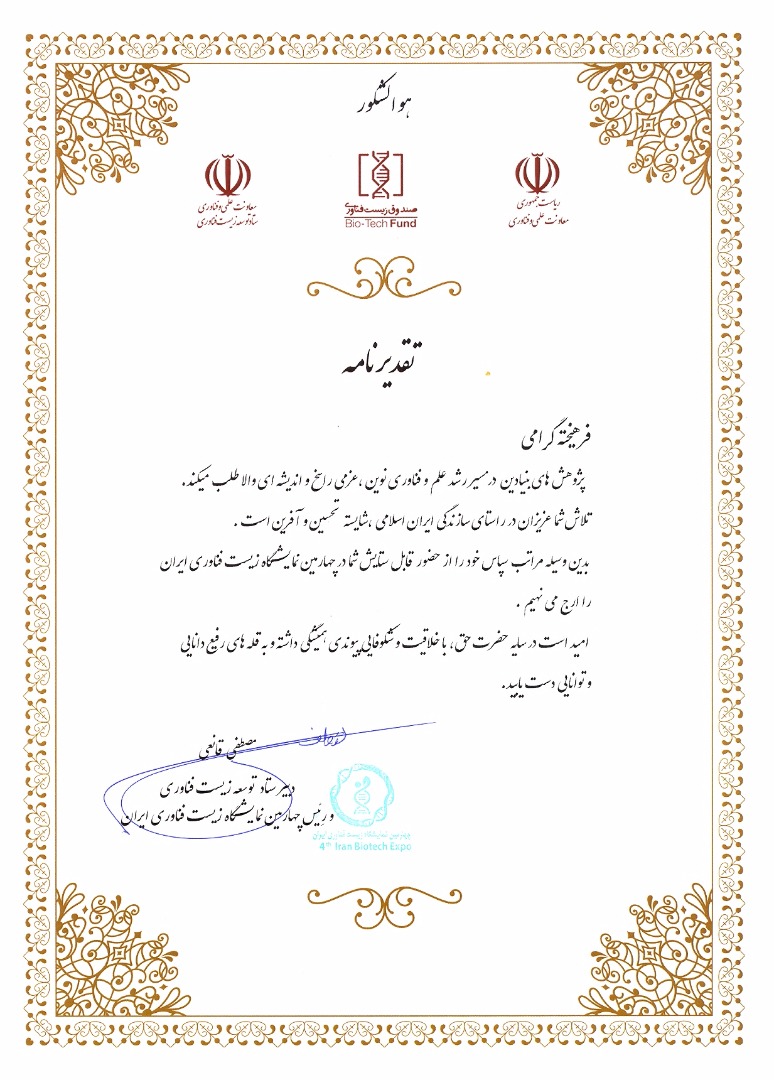 هو الشکور
ریاست جمهوری
معاونت علمی و فناوری
صندوق زیست فناوری
Bio-Tech Fund
معاونت علمی و فناوری
ستاد توسعه زیست فناوری
تقدیرنامه
فرهیخته گرامی
پژوهش های بنیادین در مسیر رشد علم و فناوری نوین ، عزمی راسخ و اندیشه ای والا طلب میکند.
تلاش شما عزیزان در راستای سازندگی ایران اسلامی ، شایسته تحسین و آفرین است .
بدین وسیله مراتب سپاس خود را از حضور قابل ستایش شما در چهارمین نمایشگاه زیست فناوری ایران
را ارج می نهیم .
امید است در سایه حضرت حق، با خلاقیت و شکوفایی پیوندی همیشگی داشته و به قله های رفیع دانایی
و توانایی دست یابید.
مصطفی قانعی
دبیر ستاد توسعه زیست فناوری
و رئیس چهارمین نمایشگاه زیست فناوری ایران
چهارمین نمایشگاه زیست فناوری ایران
4th Iran Biotech Expo